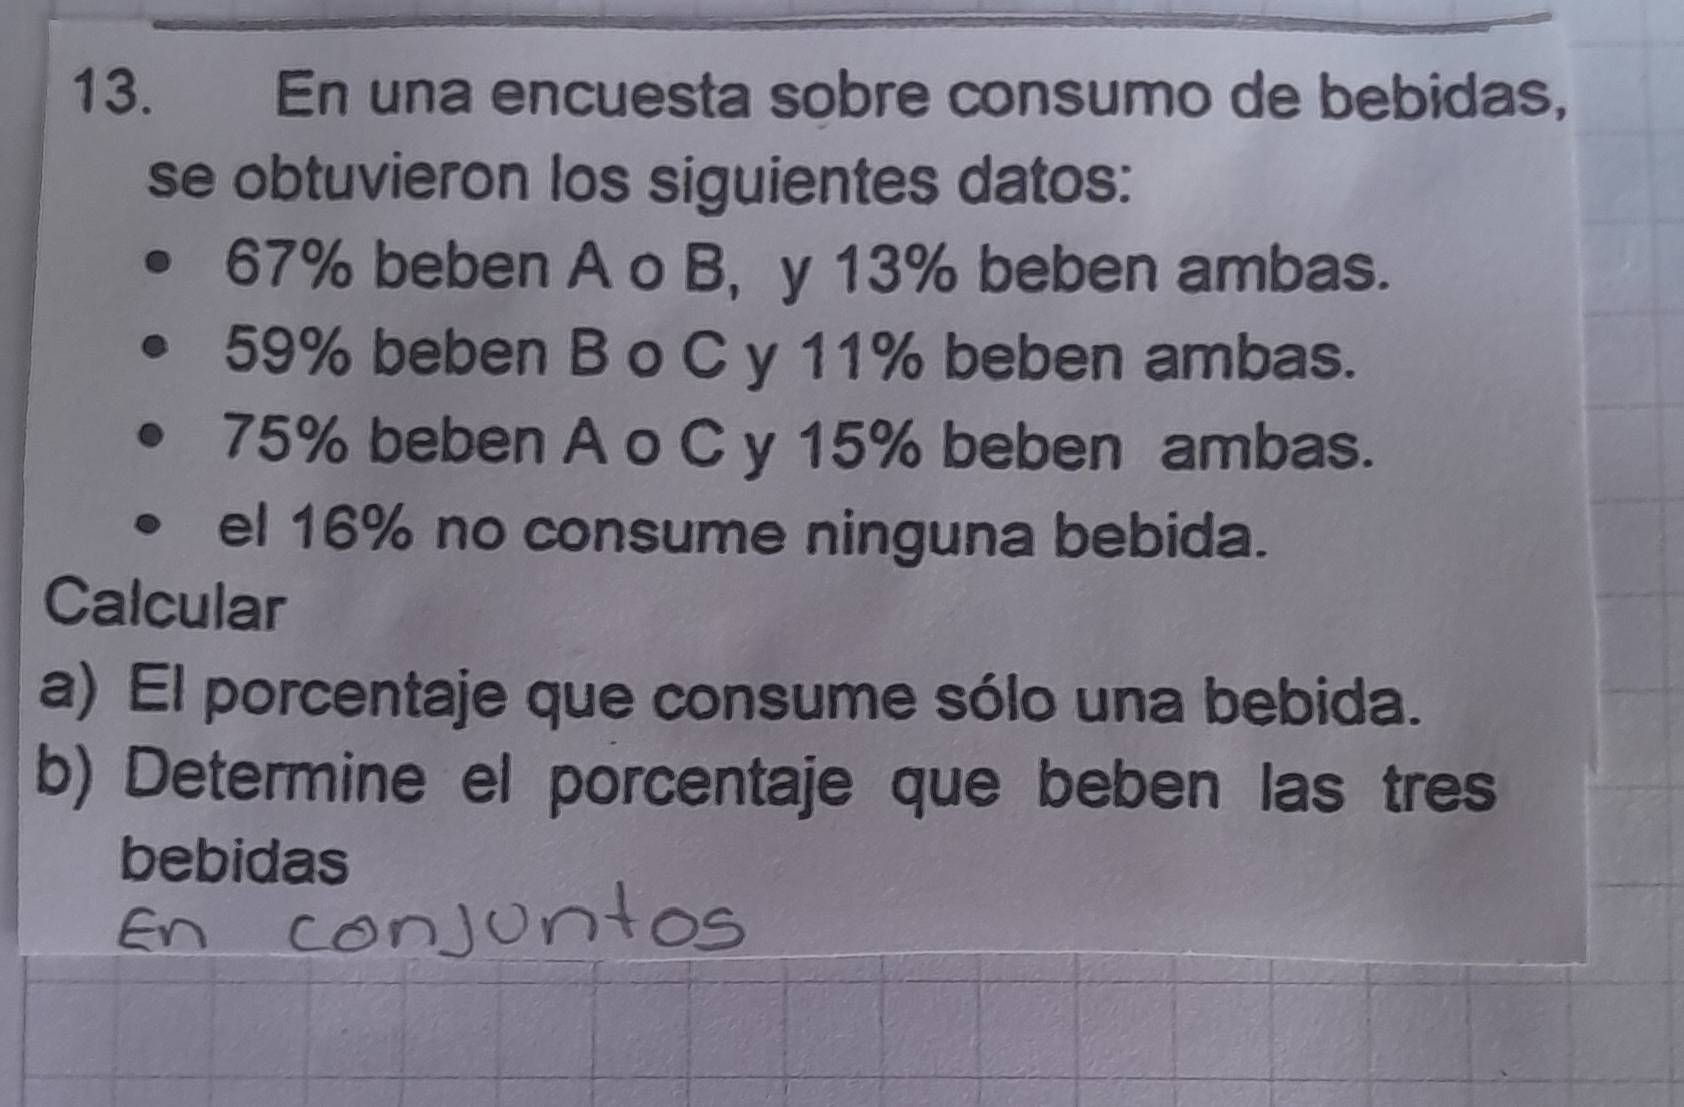 13. En una encuesta sobre consumo de bebidas,
se obtuvieron los siguientes datos:
• 67% beben A o B, y 13% beben ambas.
• 59% beben B o C y 11% beben ambas.
• 75% beben A o C y 15% beben ambas.
• el 16% no consume ninguna bebida.
Calcular
a) El porcentaje que consume sólo una bebida.
b) Determine el porcentaje que beben las tres
bebidas
En conjuntos